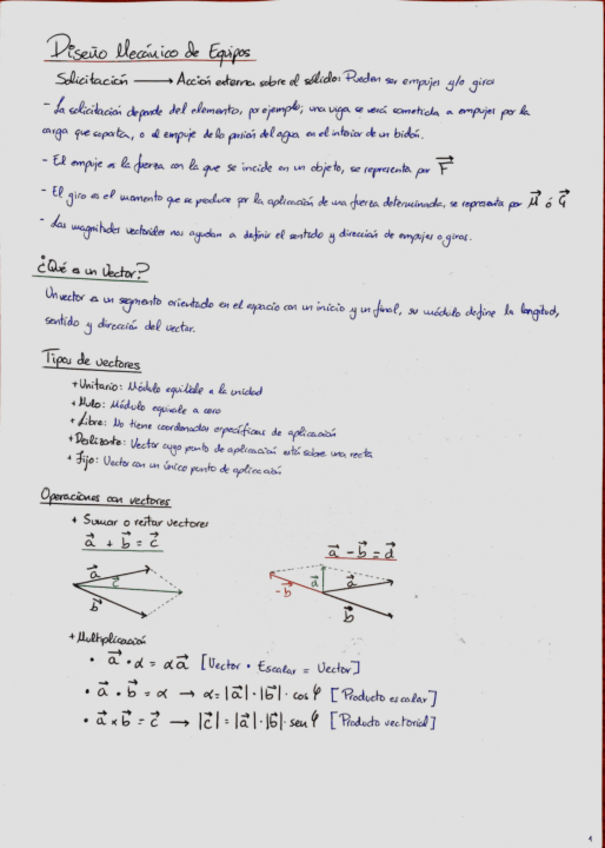 Diseño Mecánico de Equipos
Solicitación → Acción externa sobre el sólido: Pueden ser empujes y/o giros
- La solicitación depende del elemento, por ejemplo; una viga se verá sometida a empujes por la
carga que soporta, o al empuje de la presión del agua en el interior de un bidón.
- El empuje es la fuerza con la que se incide en un objeto, se representa por F⃗
- El giro es el momento que se produce por la aplicación de una fuerza determinada, se representa por M⃗ ó G⃗
- Las magnitudes vectoriales nos ayudan a definir el sentido y dirección de empujes o giros.
¿Qué es un Vector?
Un vector es un segmento orientado en el espacio con un inicio y un final, su módulo define la longitud,
sentido y dirección del vector.
Tipos de vectores
+ Unitario: Módulo equivale a la unidad
+ Nulo: Módulo equivale a cero
+ Libre: No tiene coordenadas específicas de aplicación
+ Deslizante: Vector cuyo punto de aplicación está sobre una recta
+ Fijo: Vector con un único punto de aplicación
Operaciones con vectores
+ Sumar o restar vectores
a⃗ + b⃗ = c⃗
a⃗ - b⃗ = d⃗
a⃗
c⃗
b⃗
-b⃗
d⃗
a⃗
b⃗
+ Multiplicación
• a⃗ · α = αa⃗ [Vector · Escalar = Vector]
• a⃗ · b⃗ = α → α = |a⃗| · |b⃗| · cos φ [Producto escalar]
• a⃗ x b⃗ = c⃗ → |c⃗| = |a⃗| · |b⃗| · sen φ [Producto vectorial]
1